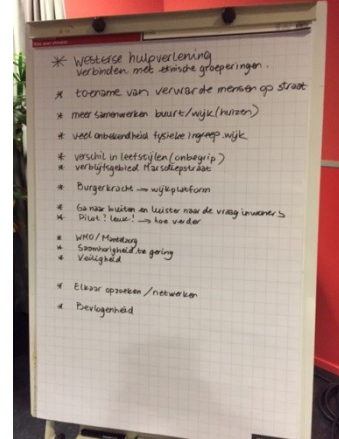 * Westerse hulpverlening
verbinden met etnische groeperingen.
* toename van verwarde mensen op straat
* meer samenwerken buurt/wijk (huizen)
* veel onbekendheid fysieke ingreep. wijk
* verschil in leefstijlen (onbegrip)
* verblijfsgebied Marsdiepstraat
* Burgerkracht → wijkplatform
* Ga naar buiten en luister naar de vraag inwoners
* Pilot? leuk! → hoe verder
* WMO/Mantelzorg
* Saamhorigheid te gering
* Veiligheid
* Elkaar opzoeken / netwerken
* Bevlogenheid